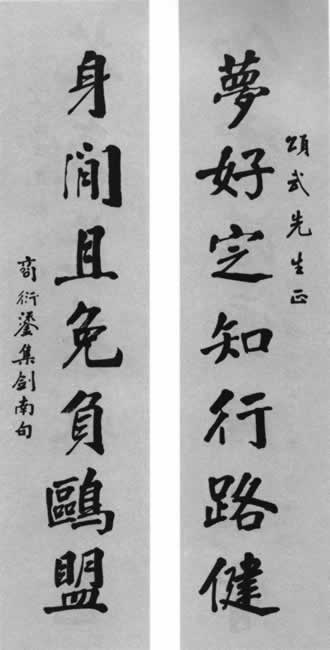 頌武先生正
夢好定知行路健
身閒且免負鷗盟
商衍鎏集劍南句